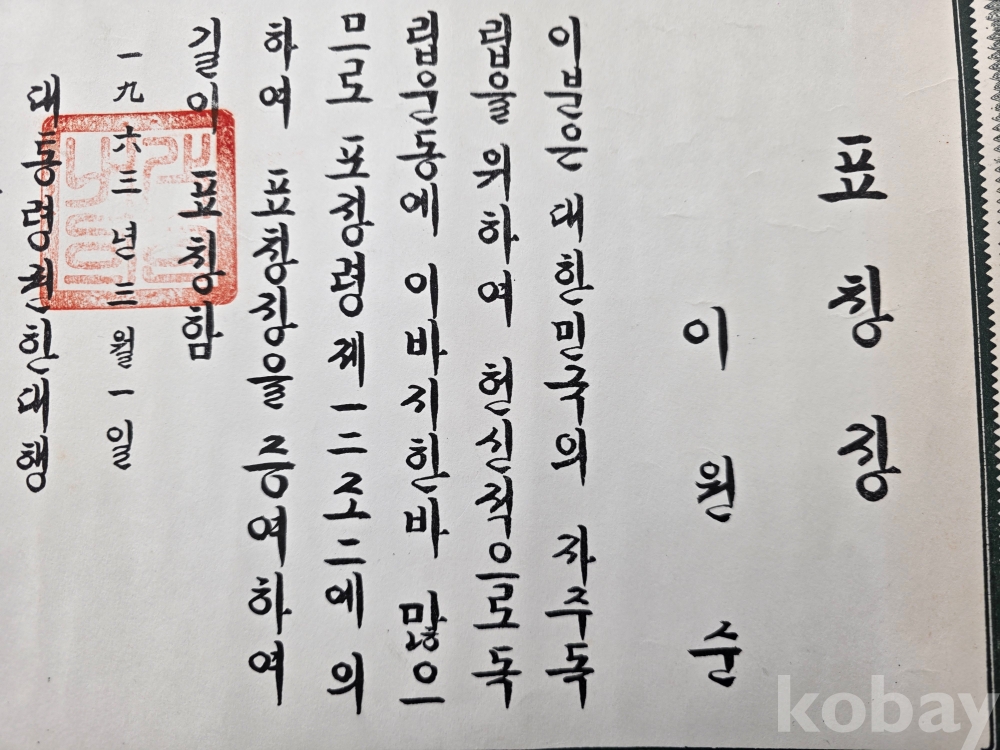 표창장
이원준
이분은 대한민국의 자주독
립을 위하여 헌신적으로 독
립운동에 이바지한바 많으
므로 포장령제一二조二에 의
하여 표창장을 증여하여
길이 표창함
一九六三년三월一일
대통령권한대행
kobay